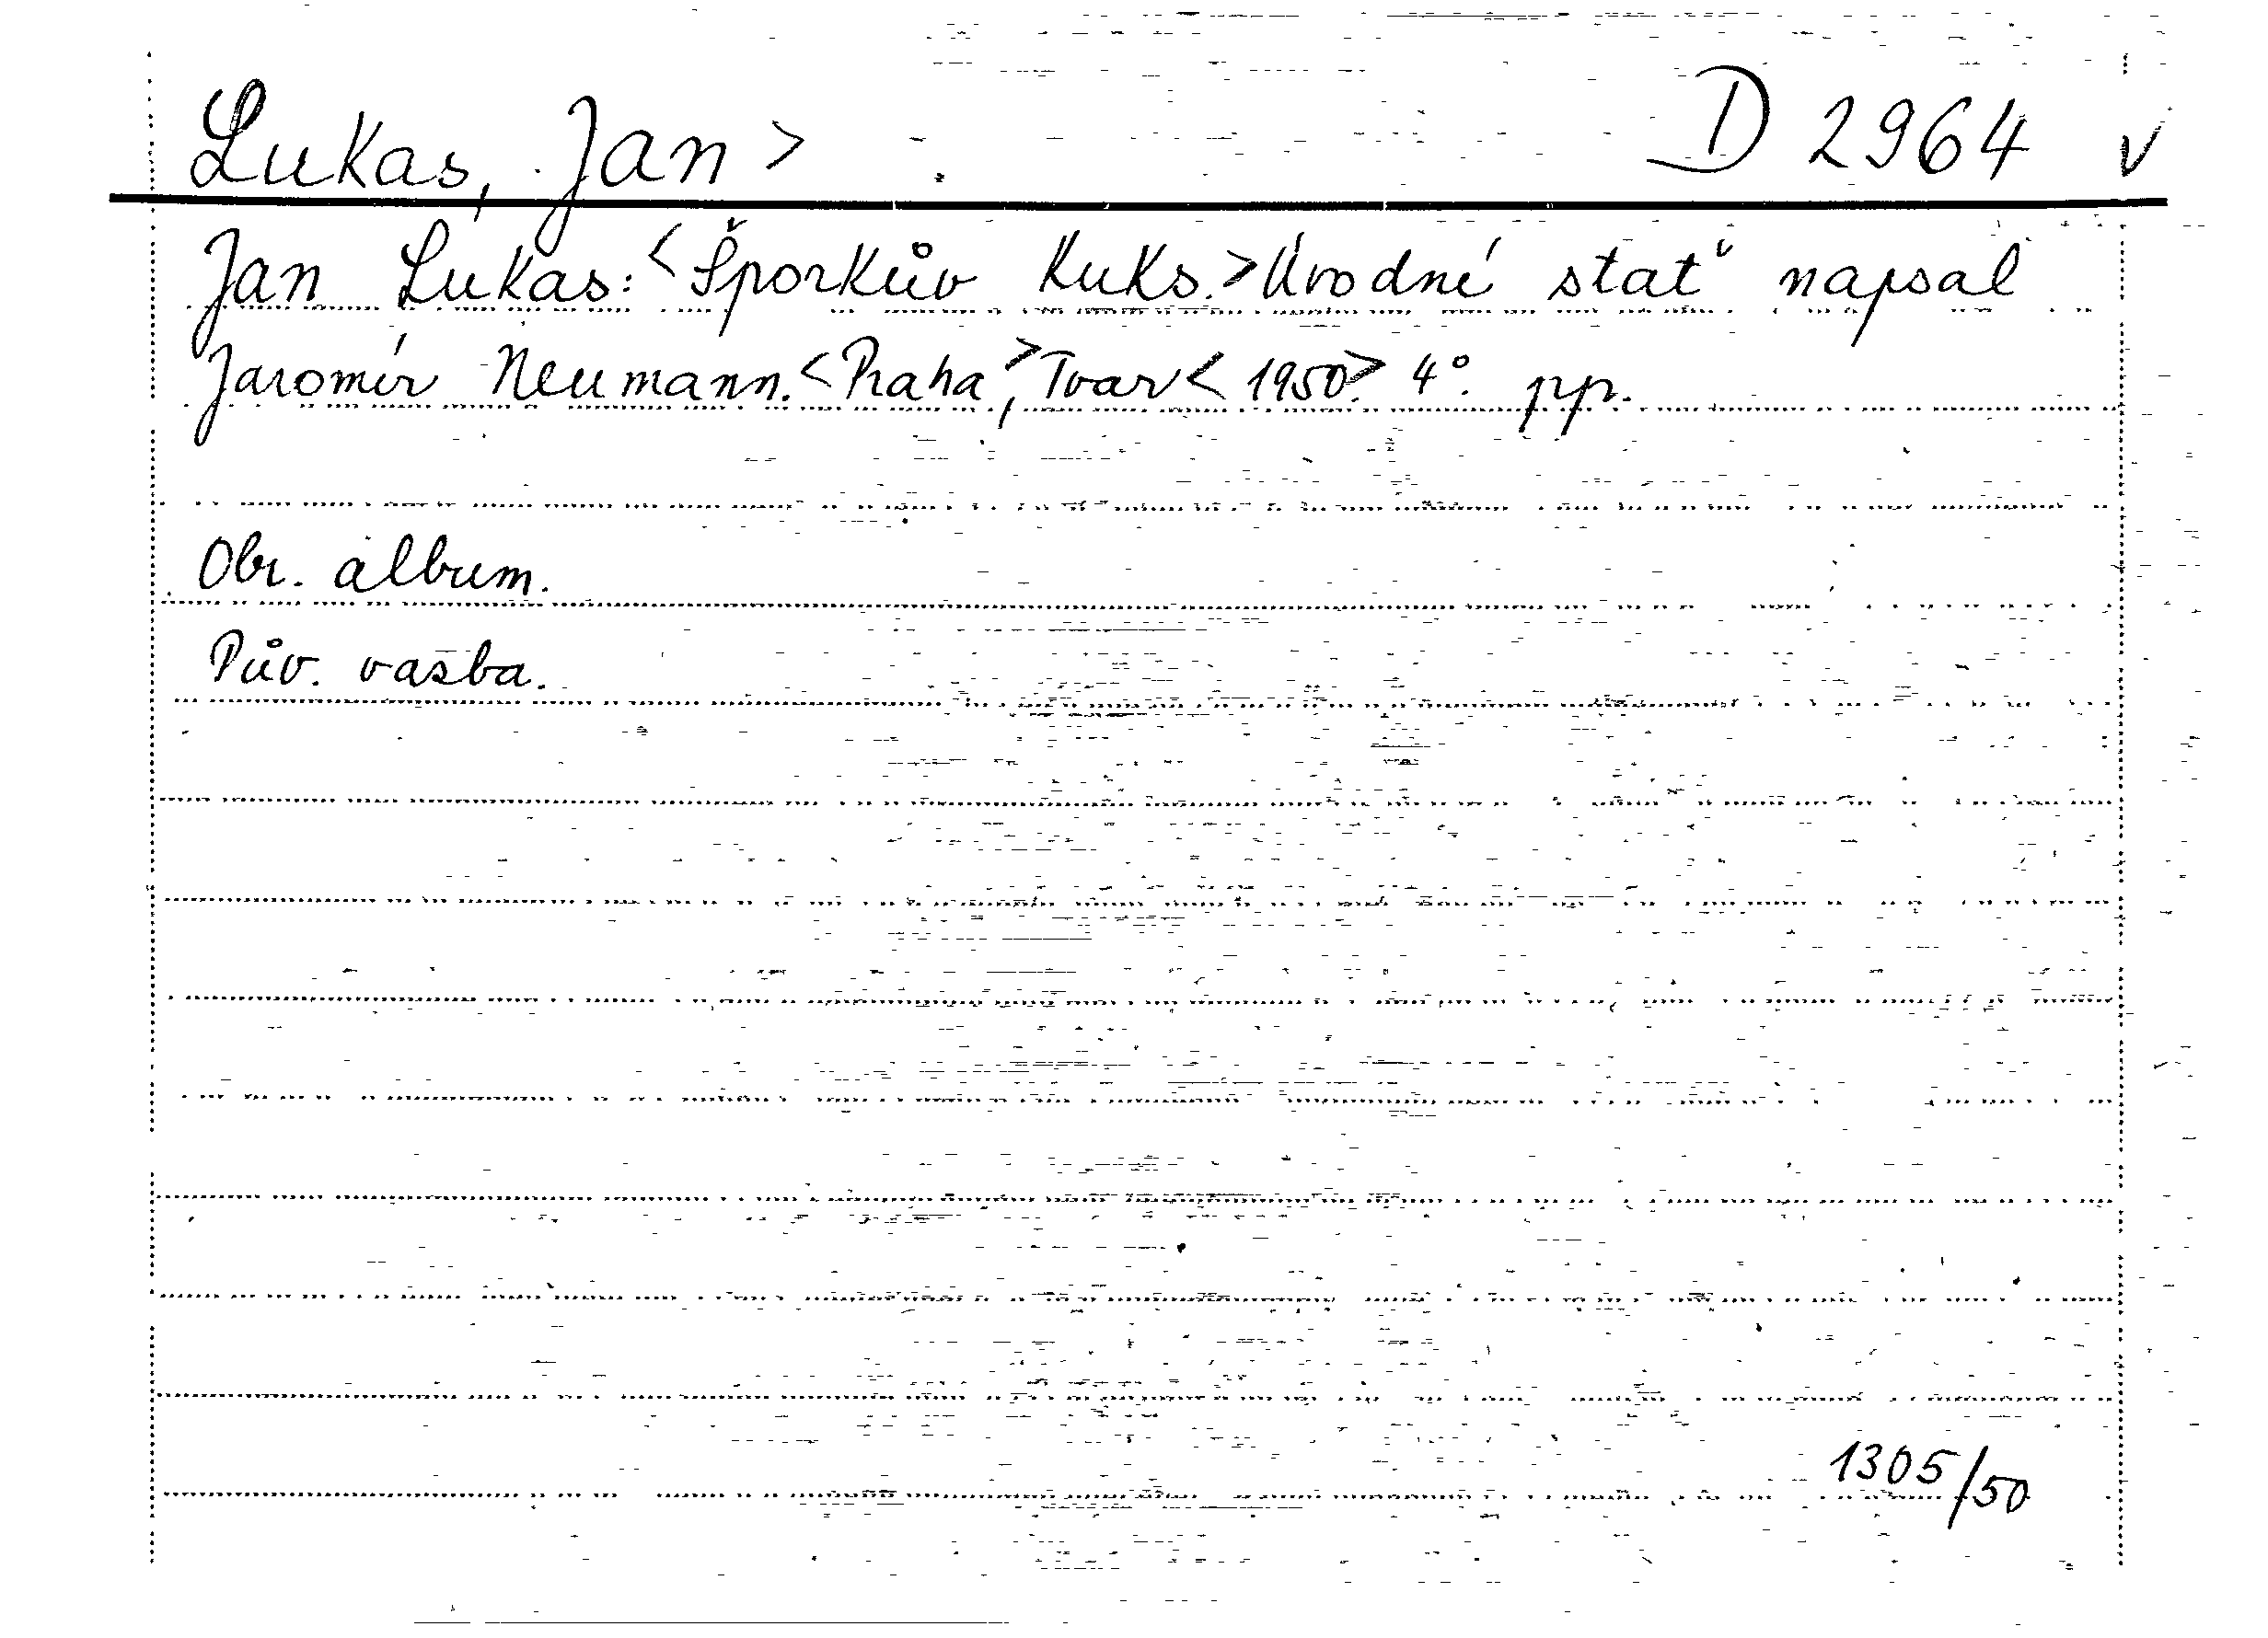 Lukas, Jan > D 2964 v
Jan Lukas: <Šporkův Kuks.> Úvodné stať napsal
Jaromír Neumann. <Praha,> Tvar < 1950.> 4°. pp.
Obr. album.
Pův. vazba.
1305/50